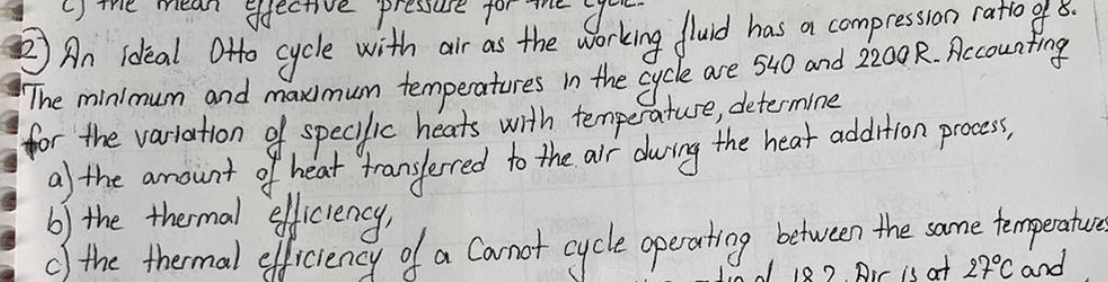 c) the mean effective pressure for the cycle.
2) An ideal Otto cycle with air as the working fluid has a compression ratio of 8.
The minimum and maximum temperatures in the cycle are 540 and 2200 R. Accounting
for the variation of specific heats with temperature, determine
a) the amount of heat transferred to the air during the heat addition process,
b) the thermal efficiency,
c) the thermal efficiency of a Carnot cycle operating between the same temperatures
of 18? Air is at 27°C and